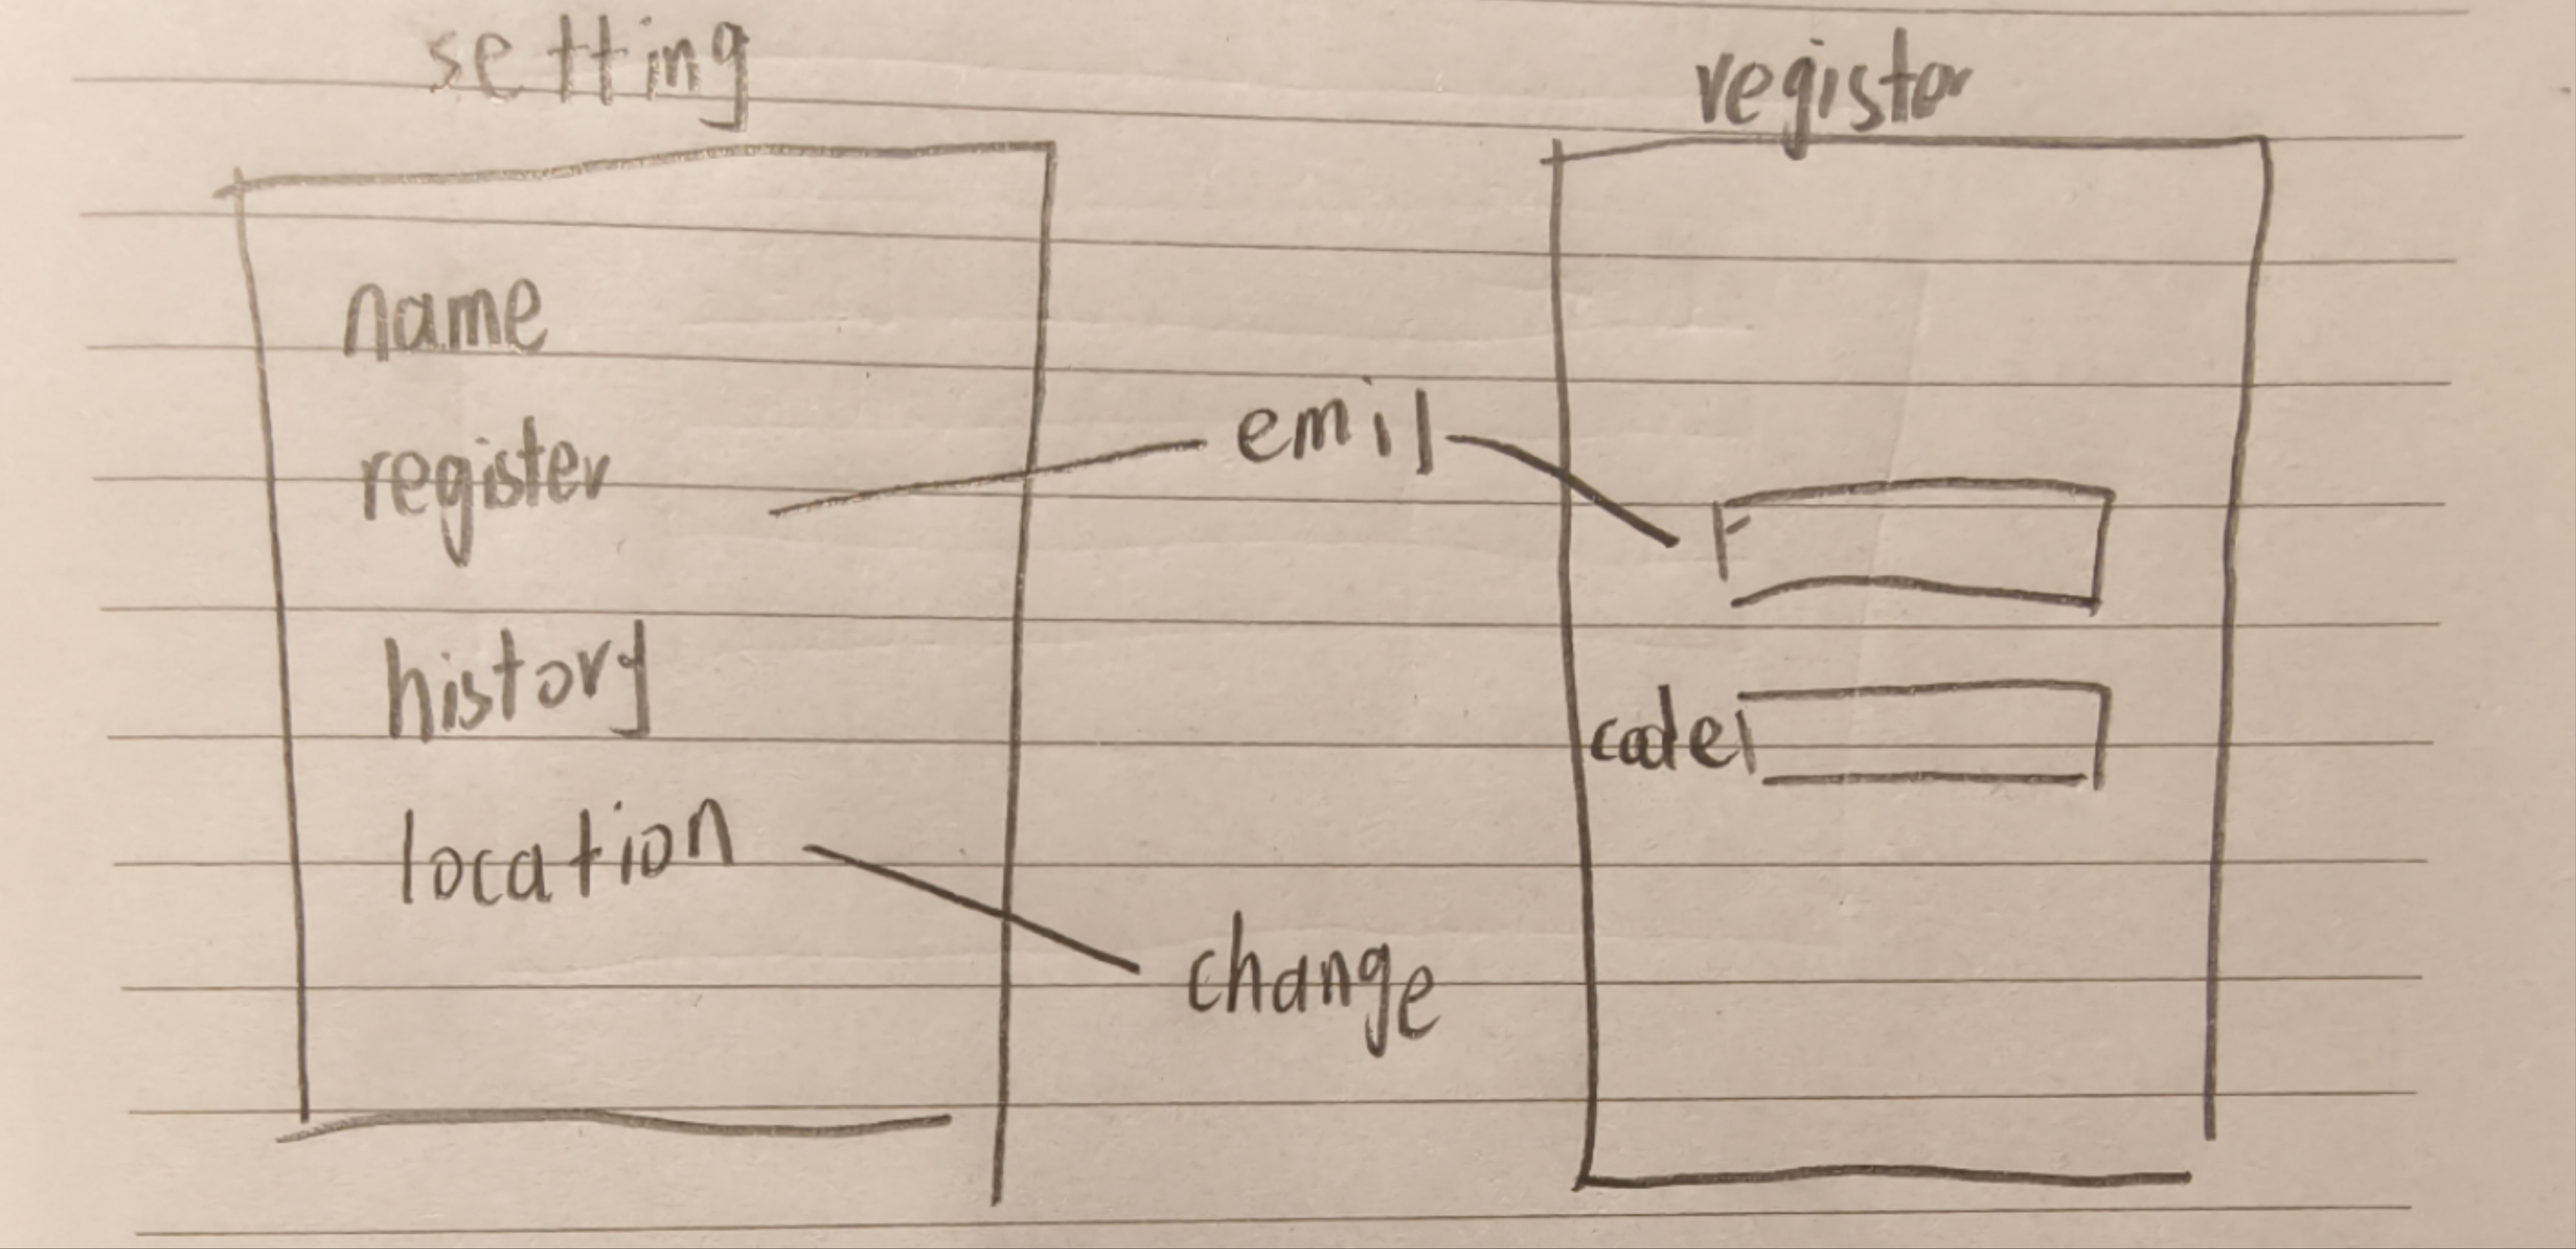 setting
name
register
history
location
emil
change
register
code